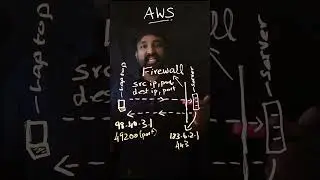 AWS
Firewall
Laptop
src ip, port
dest ip, port
server
98.40.3.1
49200 (port)
123.6.2.1
443